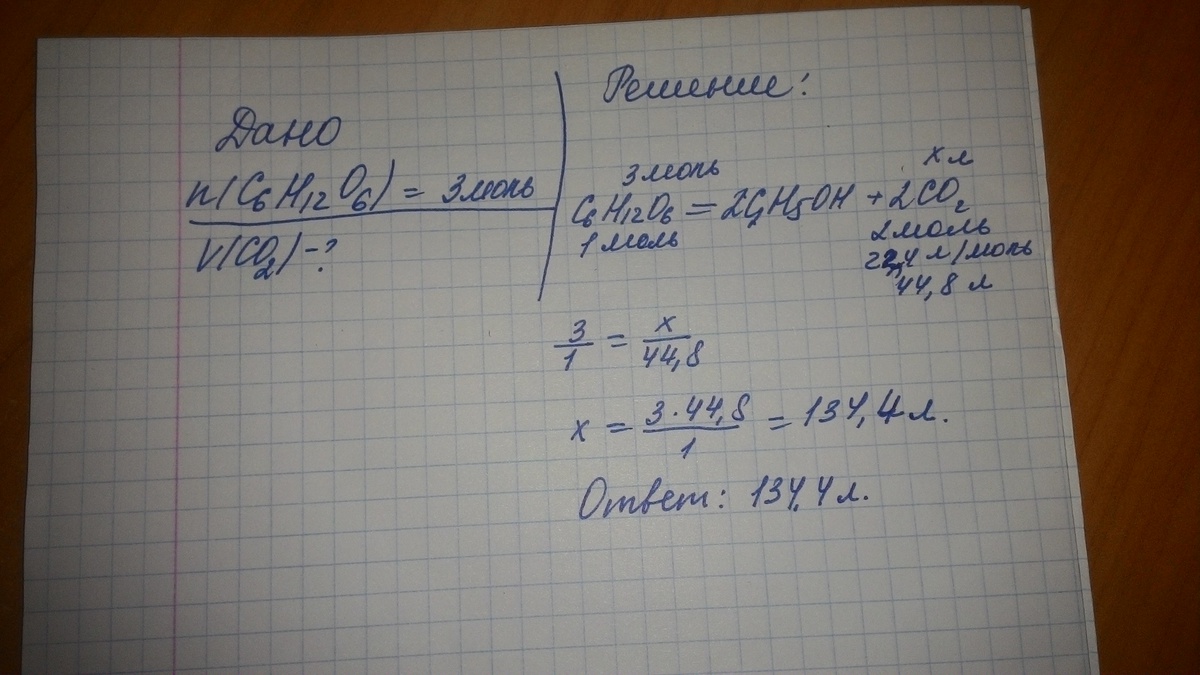 Дано
n(C₆H₁₂O₆) = 3моль
V(CO₂) - ?
Решение:
3моль x л
C₆H₁₂O₆ = 2C₂H₅OH + 2CO₂
1моль 2моль
22,4 л/моль
44,8 л
3/1 = x/44,8
x = 3·44,8/1 = 134,4л.
Ответ: 134,4л.